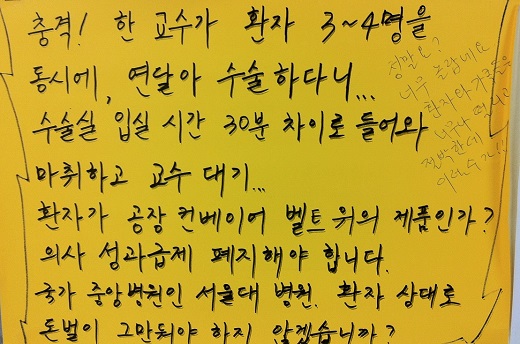 충격! 한 교수가 환자 3~4명을
동시에, 연달아 수술하다니...
수술실 입실 시간 30분 차이로 들어와
마취하고 교수 대기...
환자가 공장 컨베이어 벨트 위의 제품인가?
의사 성과급제 폐지해야 합니다.
국가 중앙병원인 서울대 병원. 환자 상대로
돈벌이 그만둬야 하지 않겠습니까?
정말요?
너무 놀랍네요
환자와 가족들은
절박한데